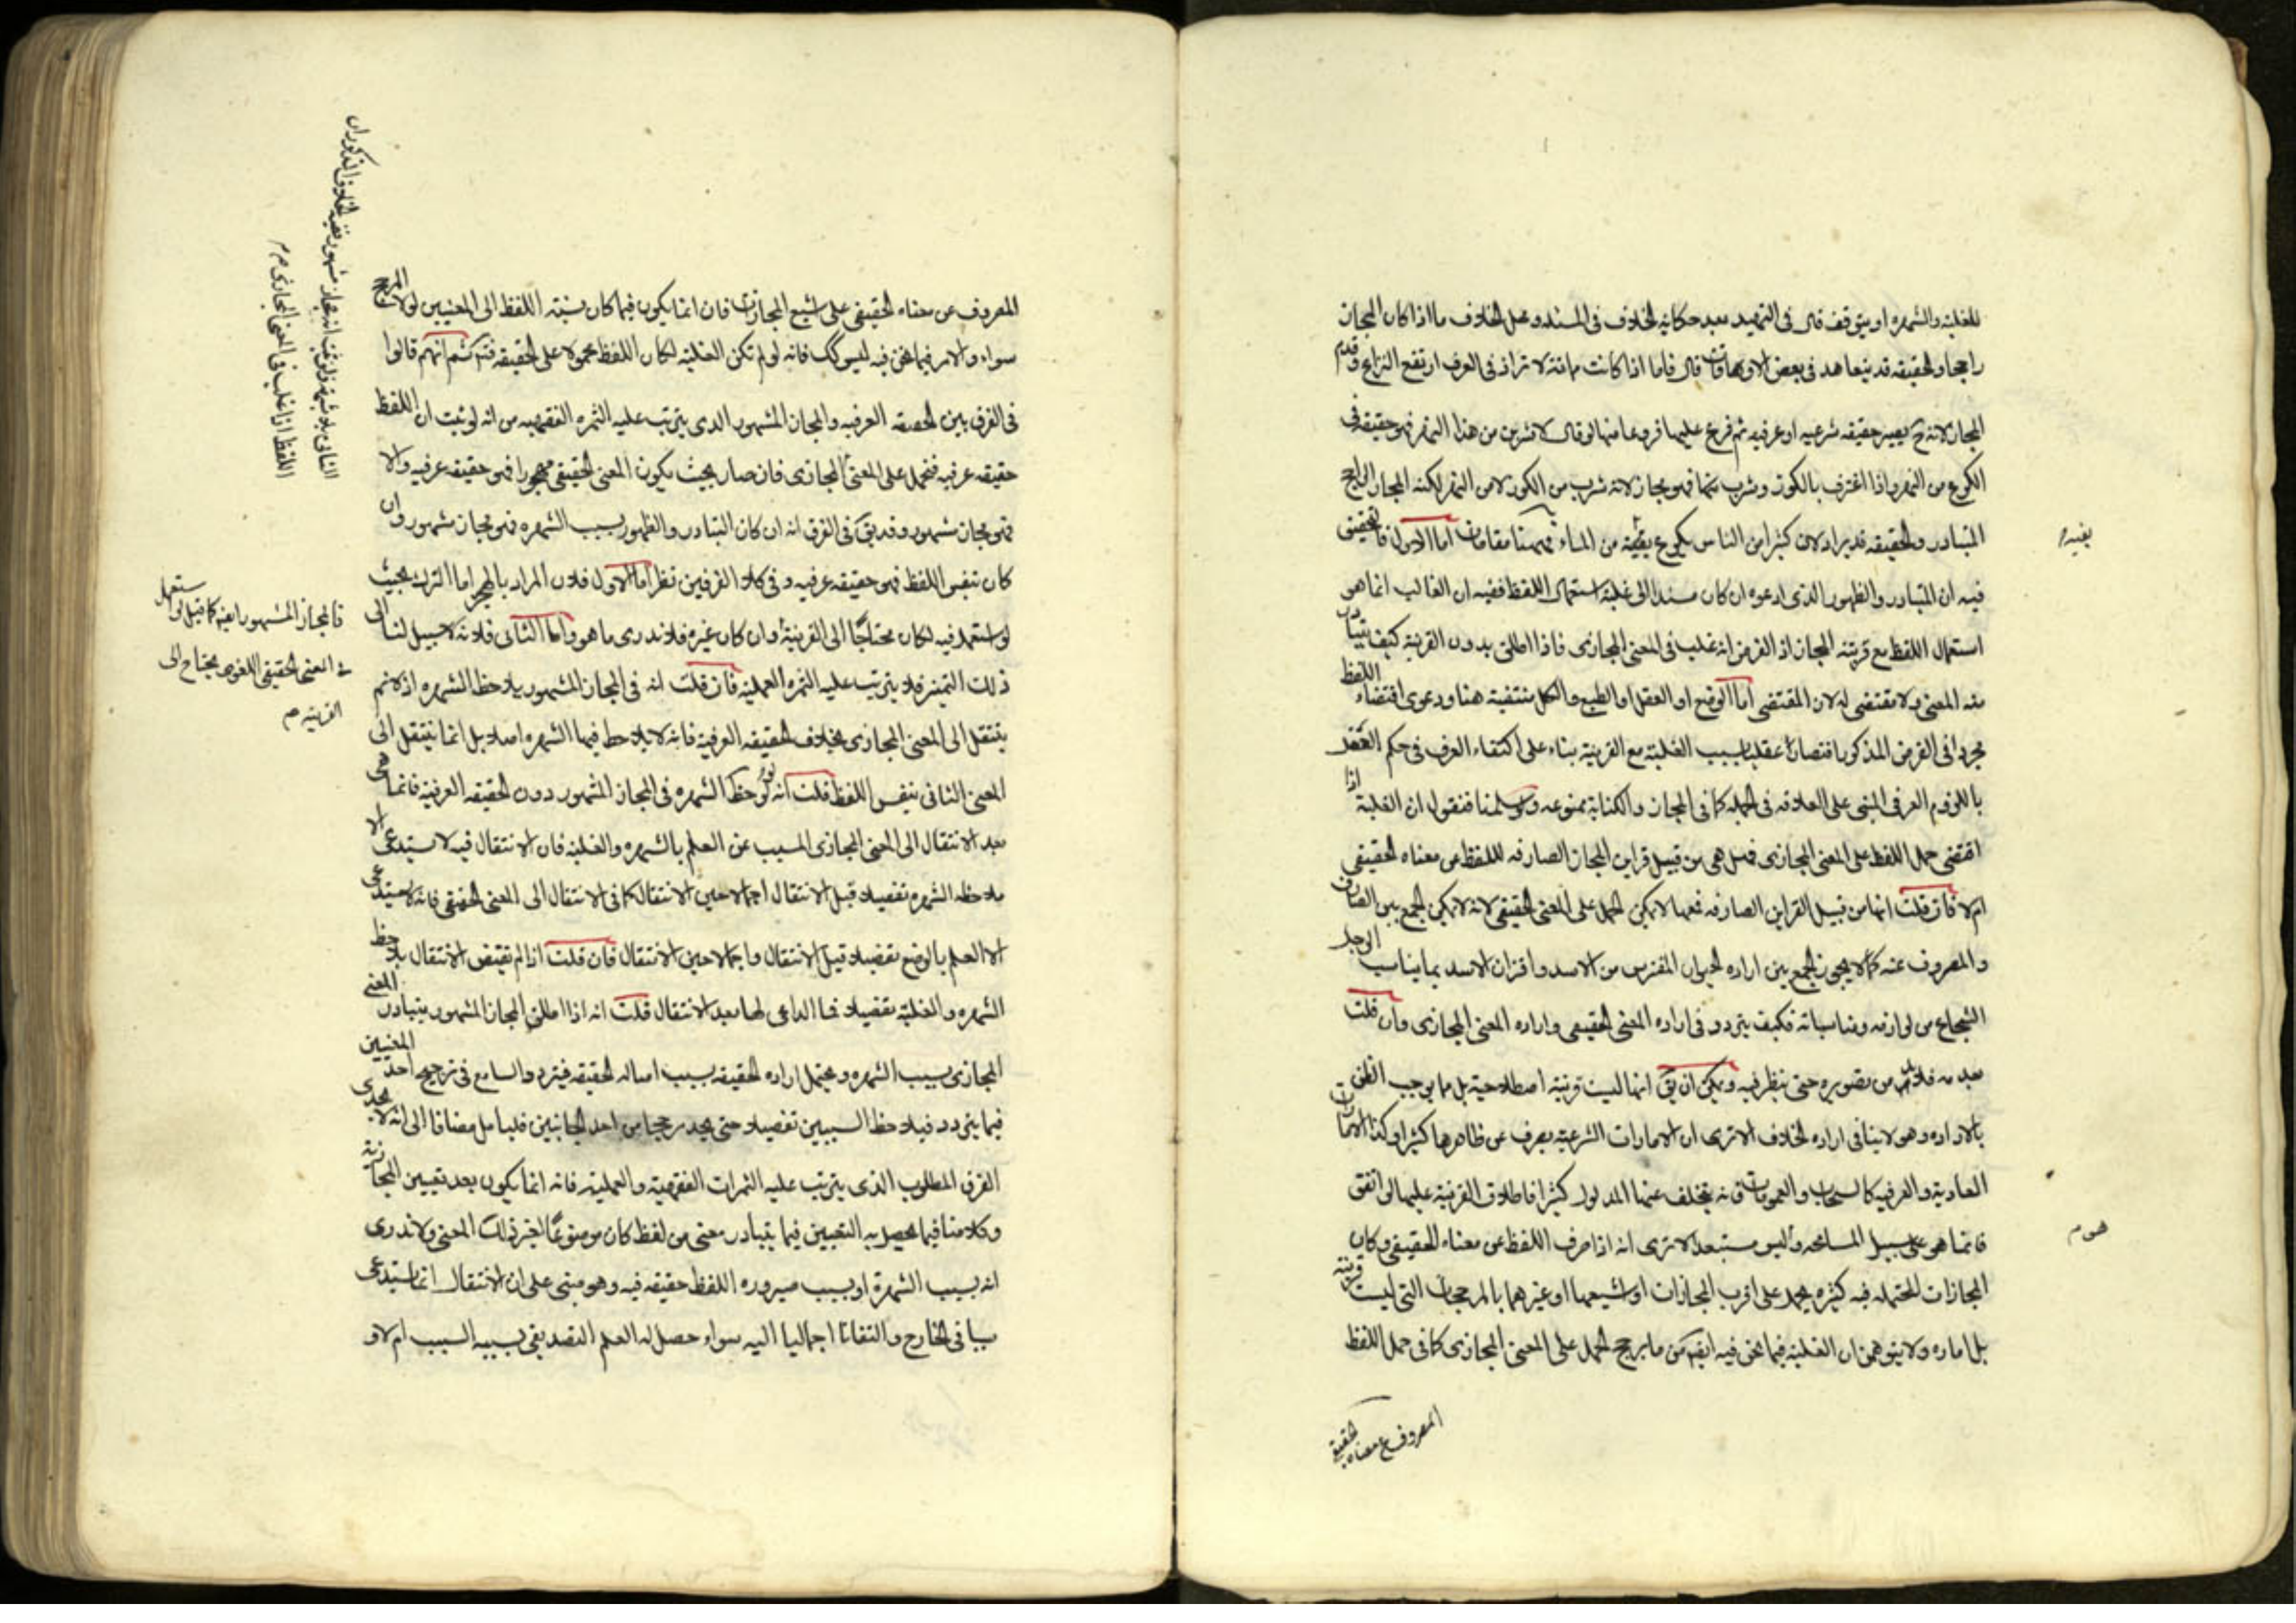 للغلبة والشهره او يتوقف قال فى التمهيد بعد حكاية الخلاف فى المسئله ومحل الخلاف ما اذا كان المجاز
راجحا والحقيقه قد يتعاهد فى بعض الاوقات قال فاما اذا كانت مماتة لا تراد فى العرف ارتفع النزاع وقدم
المجاز لانه ح يصير حقيقه شرعيه او عرفيه ثم فرع عليها فروعا منها لو قال لاشربن من هذا النهر فهو حقيقه فى
الكرع من النهر واذا اغترف بالكوز وشرب منها فهو مجاز لانه شرب من الكوز لا من النهر لكنه المجاز الراجح
المتبادر والحقيقه قد يراد لان كثيرا من الناس يكرع بفيه من الماء فههنا مقامات اما الاول فالتحقيق
فيه ان التبادر والظهور الذى ادعوه ان كان مسندا الى غلبة استعمال اللفظ ففيه ان الغالب انما هو
استعمال اللفظ مع قرينة المجاز اذ الفرض انه غلب فى المعنى المجازى فاذا اطلق بدون القرينة كيف يتبادر
منه المعنى ولا مقتضى له لان المقتضى اما الوضع او العقل او الطبع والكل منتفية هنا ودعوى اقتضاء اللفظ
مجردا فى الفرض المذكور اقتضاء عقليا بسبب الغلبة مع القرينة بناء على اكتفاء العرف فى حكم العقل
باللزوم العرفى المبنى على العلاقه فى الجمله كما فى المجاز والكناية ممنوعه ولو سلمنا فنقول ان الغلبة اذا
اقتضى حمل اللفظ على المعنى المجازى فهل هى من قبيل قراين المجاز الصارفه لللفظ عن معناه الحقيقى
ام لا فان قلت انها من قبيل القراين الصارفه فمعها لا يمكن الحمل على المعنى الحقيقى لانه لا يمكن الجمع بين الصارف
والمصروف عنه كما لا يجوز الجمع بين اراده الحيوان المفترس من الاسد واقتران الاسد بما يناسب الرجل
الشجاع من لوازمه ومناسباته فكيف يتردد فى اراده المعنى الحقيقى واراده المعنى المجازى وان قلت
بعدمه فلابد من تصويره حتى ينظر فيه ويمكن ان يق انها ليست قرينة اصطلاحية بل ما يوجب الظن
بالاراده وهو لا ينافى اراده الخلاف الا ترى ان الامارات الشرعيه يصرف عن ظاهرها كثيرا وكذا الامارات
العادية والعرفيه كالسحاب والعمومات فانه يتخلف عنها المدلول كثيرا فاطلاق القرينة عليها لو اتفق
فانما هو على سبيل المسامحه وليس مستبعد الا ترى انه اذا صرف اللفظ عن معناه الحقيقى وكان
المجازات المحتمله فيه كثيره يحمل على اقرب المجازات او اشيعها او غيرهما بالمرجحات التى ليست قرينة
بل اماره ولا يتوهمن ان الغلبة فيما نحن فيه ايضا من ما يرجح الحمل على المعنى المجازى كما فى حمل اللفظ
المصروف عن معناه الحقيقى
هو م
المصروف عن معناه الحقيقى على اشيع المجازات فان انما يكون فيما كان نسبة اللفظ الى المعنيين لولا المرجح
سواء والامر فيما نحن فيه ليس كك فانه لو لم تكن الغلبة لكان اللفظ محمولا على الحقيقه ثم انهم قالوا
فى الفرق بين الحقيقه العرفيه والمجاز المشهور الذى يترتب عليه الثمره الفقهيه من انه لو ثبت ان اللفظ
حقيقه عرفيه فتحمل على المعنى المجازى فان صار بحيث يكون المعنى الحقيقى مهجورا فهو حقيقه عرفيه والا
فهو مجاز مشهور وقد يق فى الفرق انه ان كان التبادر والظهور بسبب الشهره فهو مجاز مشهور وان
كان بنفس اللفظ فهو حقيقه عرفيه وفى كلا الفرقين نظر اما الاول فلان المراد بالهجر اما الترك بحيث
لو استعمل فيه لكان محتاجا الى القرينة وان كان غيره فلا ندرى ما هو واما الثانى فلانه لا سبيل لنا الى
ذلك التميز فلا يترتب عليه الثمره العمليه فان قلت انه فى المجاز المشهور يلاحظ الشهره اذلا ثم
ينتقل الى المعنى المجازى بخلاف الحقيقه العرفية فانه لا يلاحظ فيها الشهره اصلا بل انما ينتقل الى
المعنى الثانى بنفس اللفظ قلت انه لو حظ الشهره فى المجاز المشهور دون الحقيقه العرفية فانما هى
بعد الانتقال الى المعنى المجازى المسبب عن العلم بالشهره والغلبة فان الانتقال فيه لا يستدعى الا
ملاحظه الشهره تفصيلا قبل الانتقال اجمالا حين الانتقال كما فى الانتقال الى المعنى الحقيقى فانه لا يستدعى
الا العلم بالوضع تفصيلا قبل الانتقال واجمالا حين الانتقال فان قلت اذا لم يقتض الانتقال ملاحظ
الشهره والغلبة تفصيلا فما الداعى لها بعد الانتقال قلت انه اذا اطلق المجاز المشهور يتبادر المعنى
المجازى بسبب الشهره ويحتمل اراده الحقيقه بسبب اصاله الحقيقه فيتردد السامع فى ترجيح احد المعنيين
فيما يتردد فيلاحظ السببين تفصيلا حتى يجد رجحا من احد الجانبين فليتامل مضافا الى انه لا يجدى
الفرق المطلوب الذى يترتب عليه الثمرات الفقهية والعملية فانه انما يكون بعد تعيين المجازية
وكلامنا فيما يحصل به التعيين فيما يتبادر معنى من لفظ كان موضوعا لغير ذلك المعنى ولا ندرى
انه بسبب الشهرة او بسبب صيروره اللفظ حقيقه فيه وهو مبنى على ان الانتقال انما يستدعى
سببا فى الخارج والتفاتا اجماليا اليه سواء حصل له العلم التصديقى بسببيه السبب ام لا و
فالمجاز المشهور ايضا كما قيل لو استعمل
فى المعنى الحقيقى اللغوى يحتاج الى
القرينه م
اللفظ اذا غلب فى المعنى المجازى م م